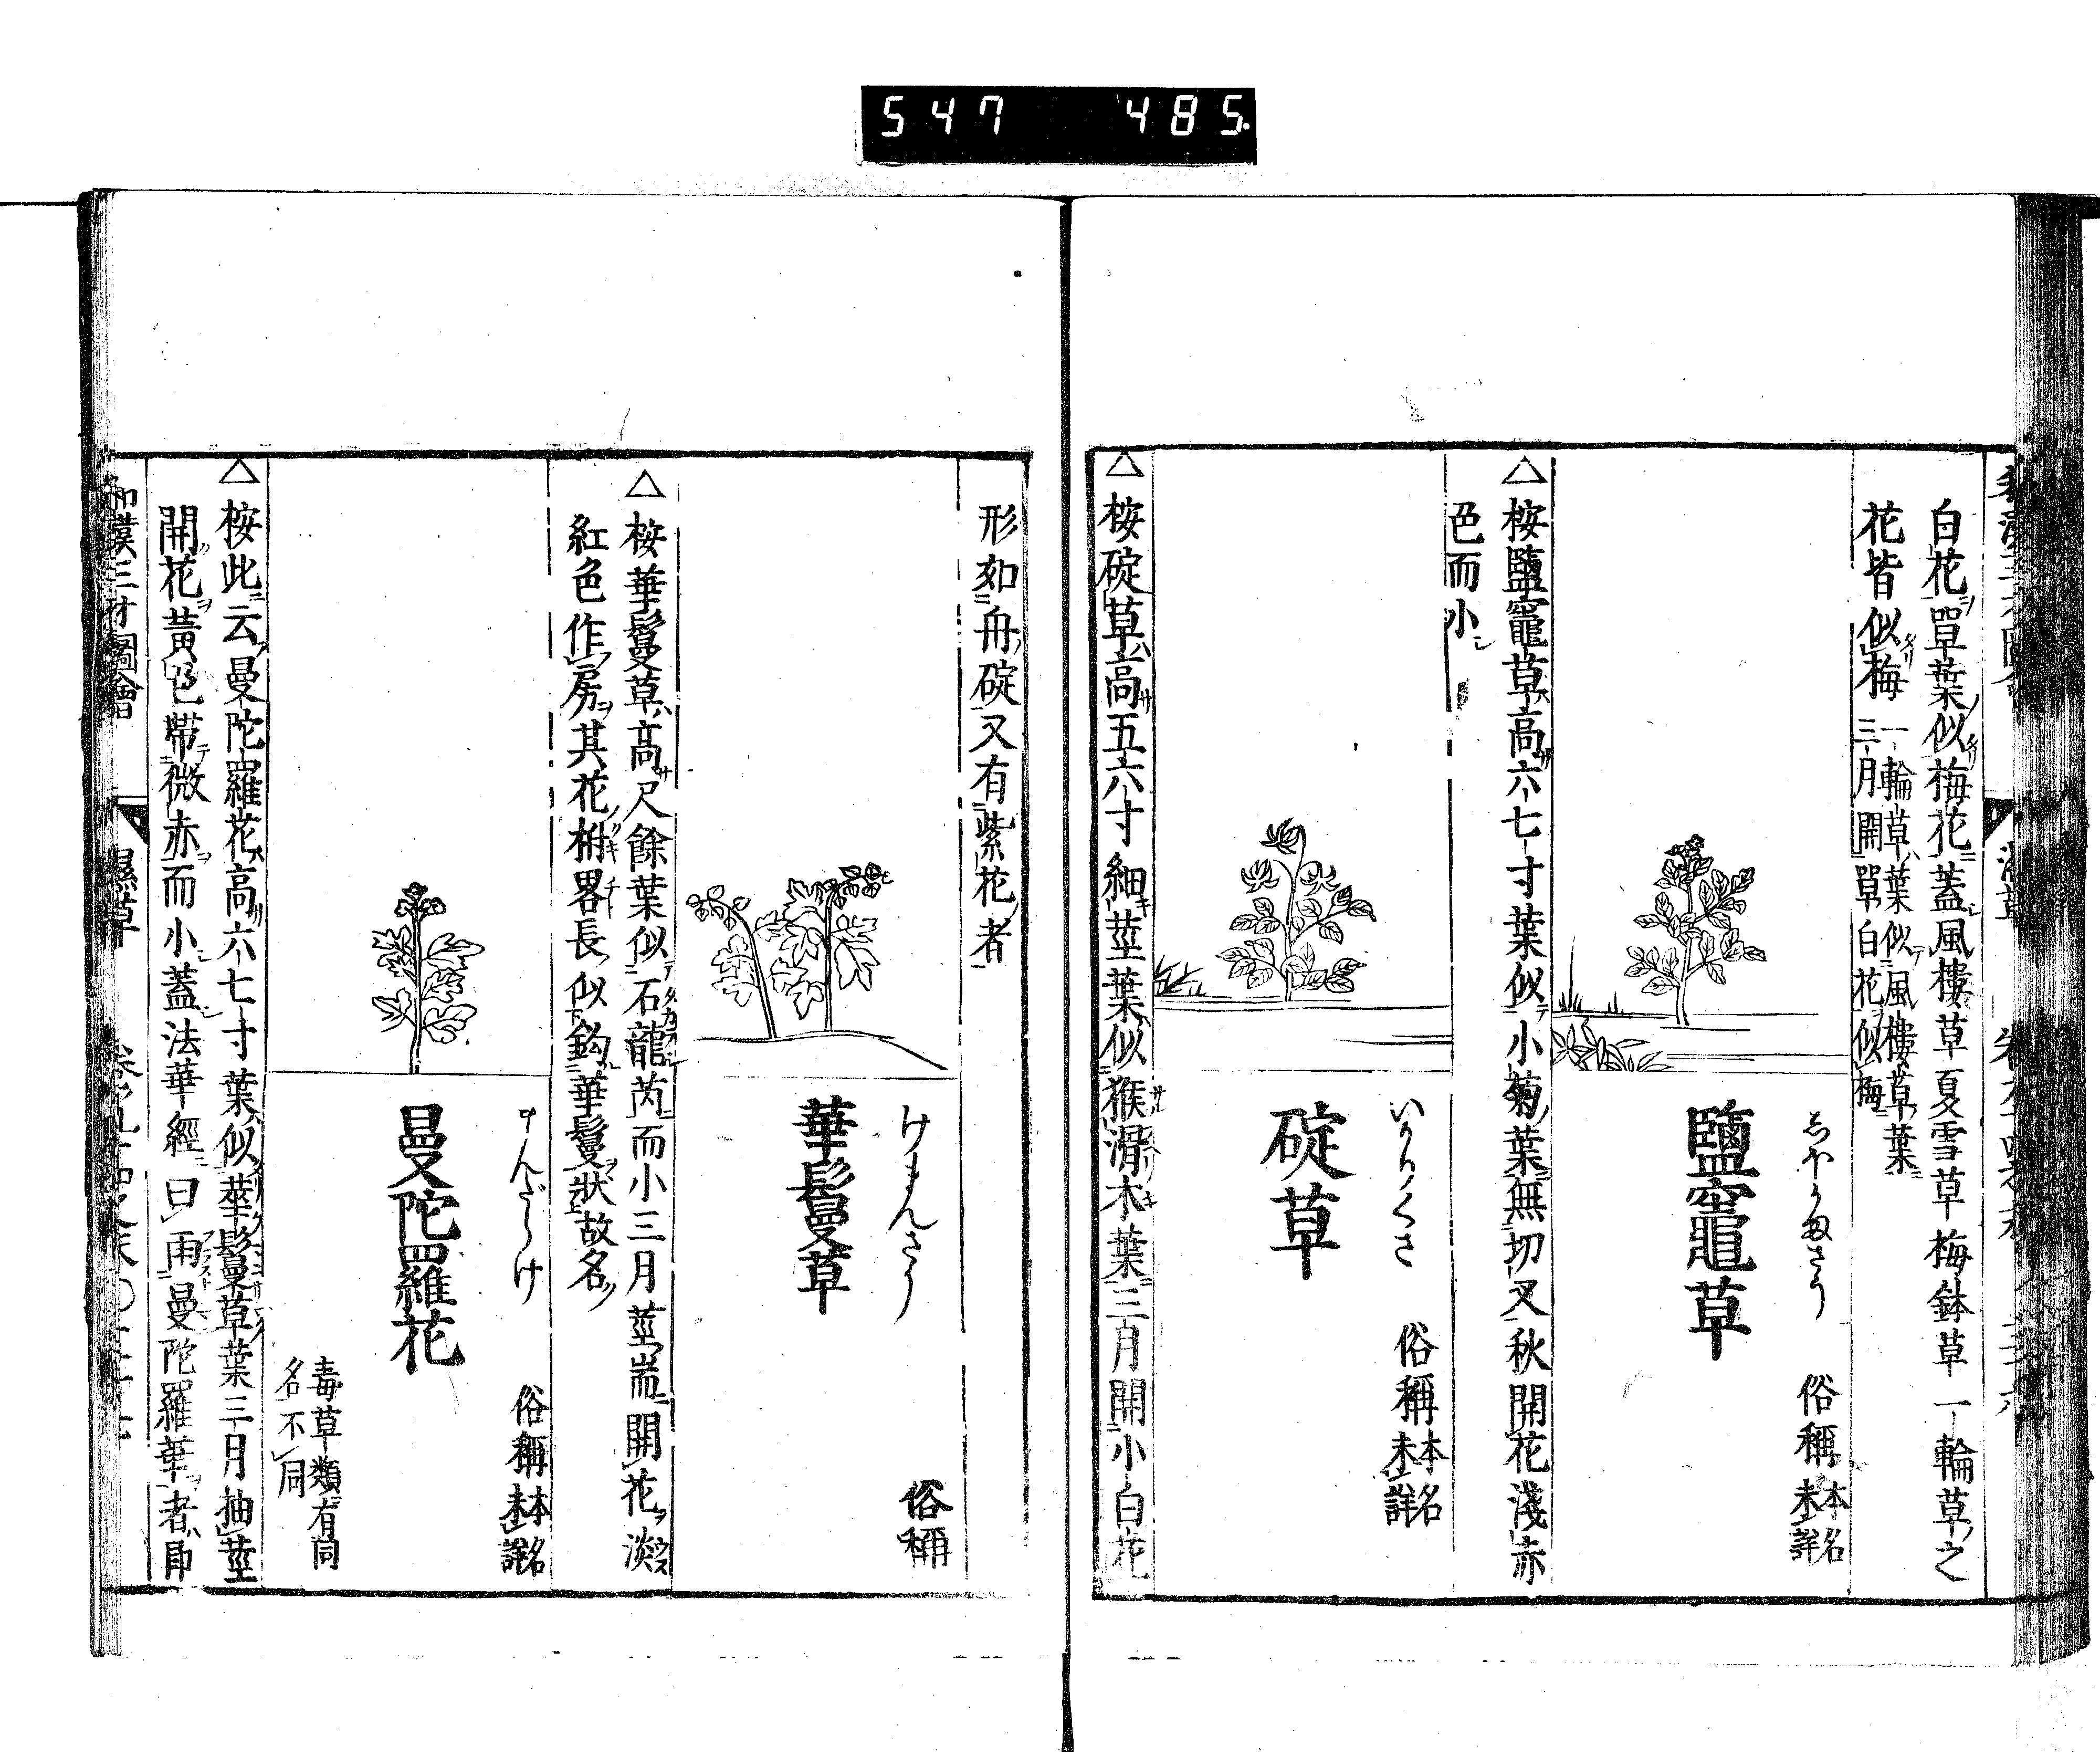 547 485
白花單葉似梅花蓋風樓草夏雪草梅鉢草一輪草之
花皆似梅
一輪草葉似風樓草葉
三月開單白花似梅
鹽竈草
俗稱
本名
未詳
△按鹽竈草高六七寸葉似小菊葉無切又秋開花淺赤
色而小
いかりくさ
碇草
俗稱
本名
未詳
△按碇草高五六寸細莖葉似猴滑木葉三月開小白花
形如舟碇又有紫花者
けまんさう
華鬘草
俗稱
△按華鬘草高尺餘葉似石龍芮而小三月莖耑開花淡
紅色作房其花枡畧長似鈎華鬘狀故名
まんだらけ
曼陀羅花
俗稱
本名
未詳
毒草類有同
名不同
△按此云曼陀羅花高六七寸葉似華鬘草葉三月抽莖
開花黃色帶微赤而小蓋法華經曰雨曼陀羅華者即
和漢三才圖會 濕草